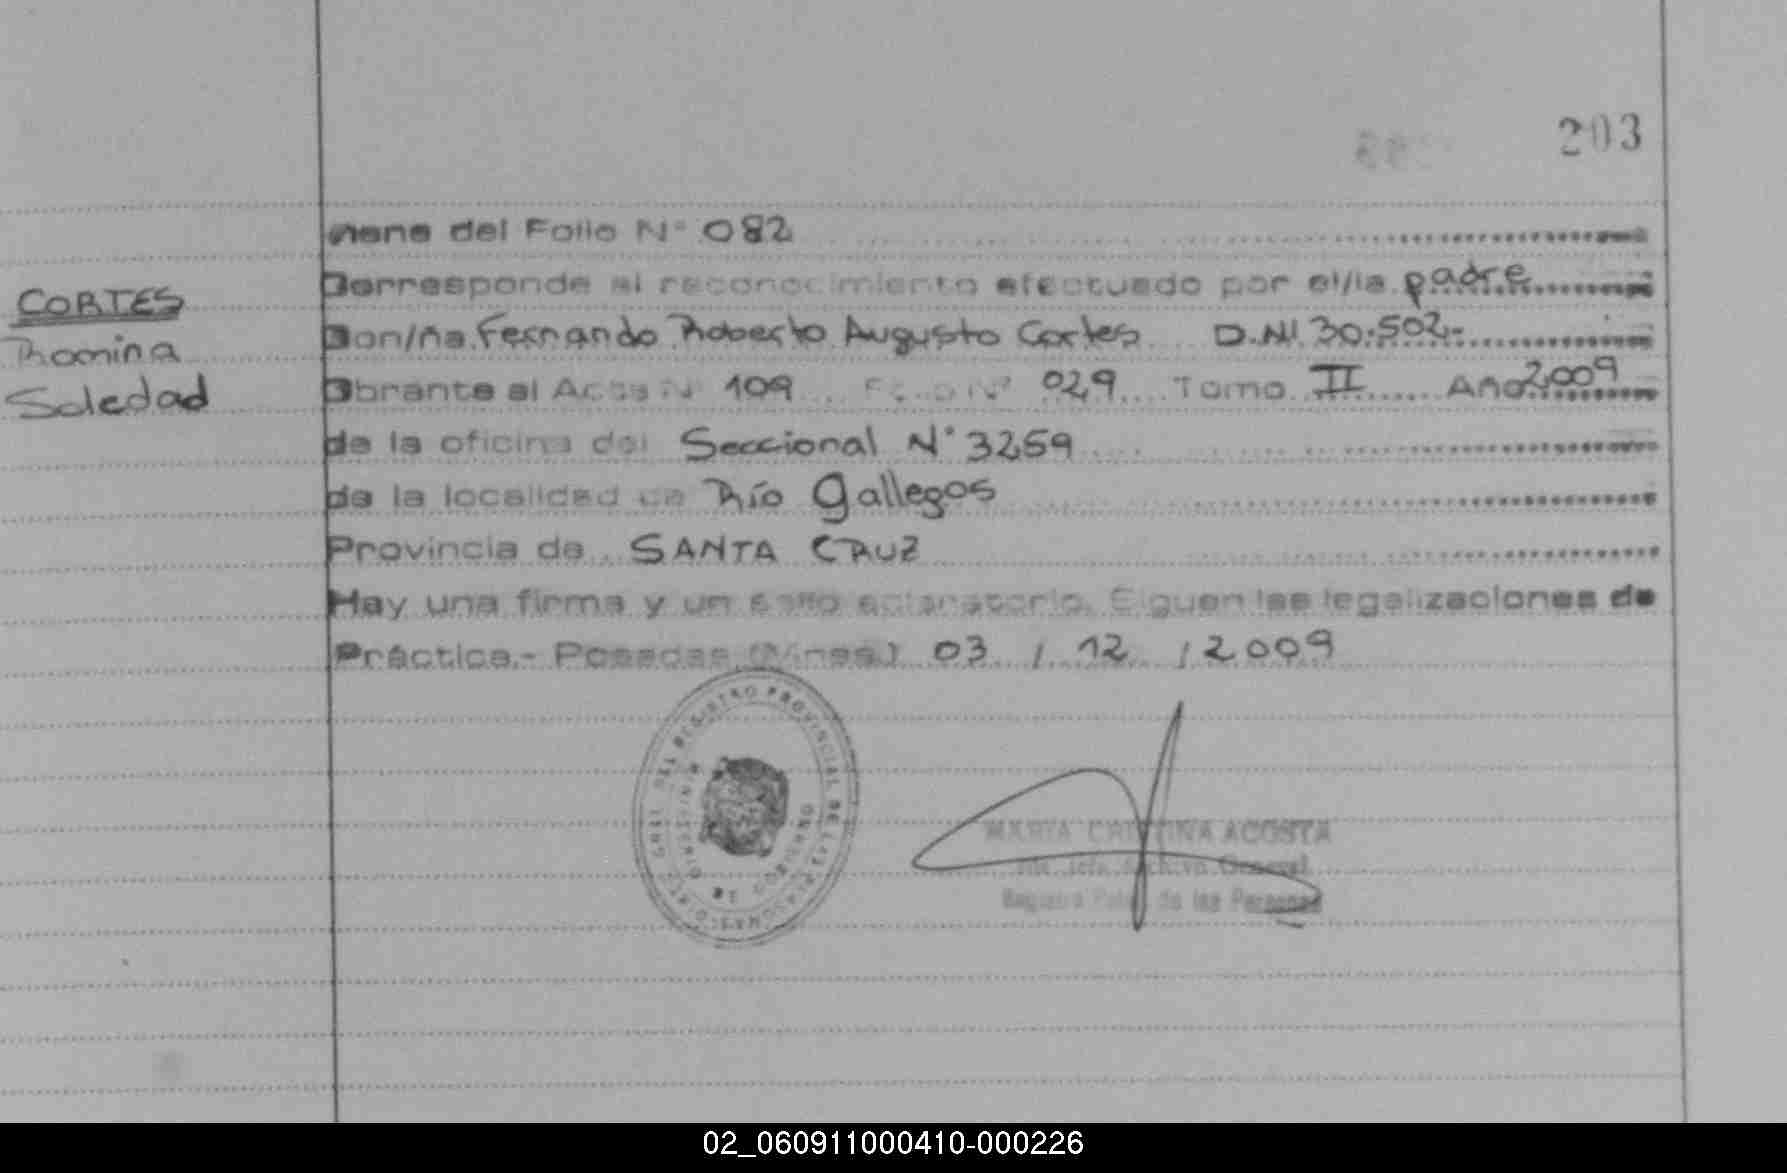 203
viene del Folio N° 082
CORTES
Romina
Soledad
Corresponde al reconocimiento efectuado por el/la padre
Don/ña Fernando Roberto Augusto Cortes D.NI 30.502.-
Obrante al Acta N° 109 Folio N° 029 Tomo II Año 2009
de la oficina del Seccional N° 3259
de la localidad de Río Gallegos
Provincia de SANTA CRUZ
Hay una firma y un sello aclaratorio. Siguen las legalizaciones de
Práctica.- Posadas (Mnes.) 03 / 12 / 2009
REGISTRO PROVINCIAL DE LAS PERSONAS
MINISTERIO DE GOBIERNO
MARIA CRISTINA ACOSTA
Archivo General
Registro de las Personas
02_060911000410-000226